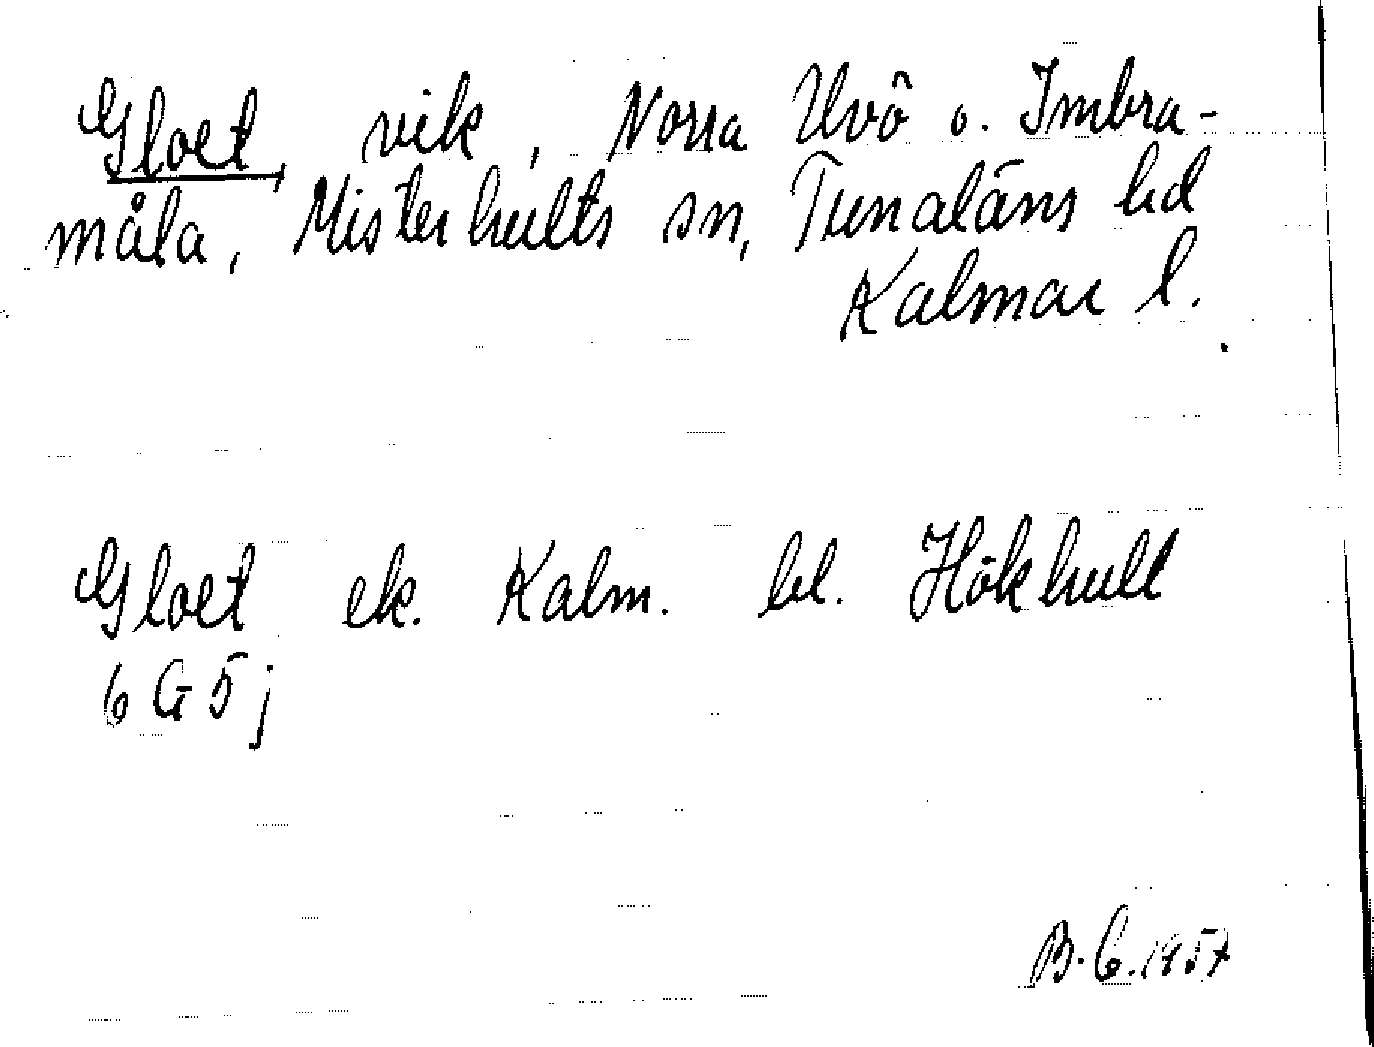 Gloet, vik, Norra Uvö o. Imbra-
måla, Misterhults sn, Tunaläns hd
Kalmar l.
Gloet ek. Kalm. bl. Hökhult
6 G 5 j
B. C. 1957